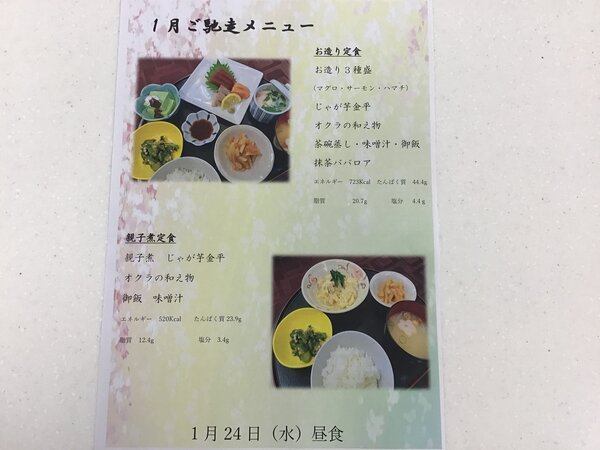 1月ご馳走メニュー
お造り定食
お造り3種盛
(マグロ・サーモン・ハマチ)
じゃが芋金平
オクラの和え物
茶碗蒸し・味噌汁・御飯
抹茶ババロア
エネルギー 723Kcal たんぱく質 44.4g
脂質 20.7g 塩分 4.4g
親子煮定食
親子煮 じゃが芋金平
オクラの和え物
御飯 味噌汁
エネルギー 520Kcal たんぱく質 23.9g
脂質 12.4g 塩分 3.4g
1月24日(水)昼食